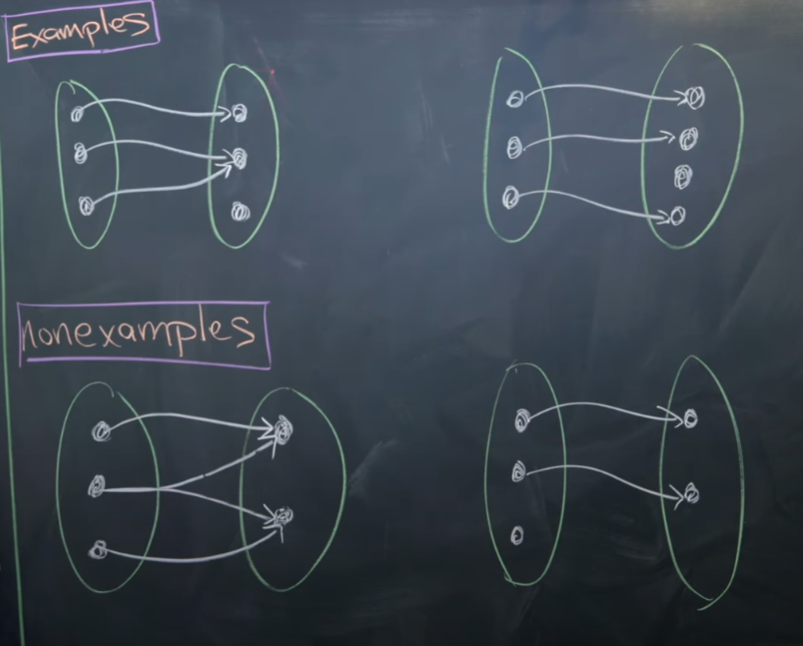 Examples
nonexamples